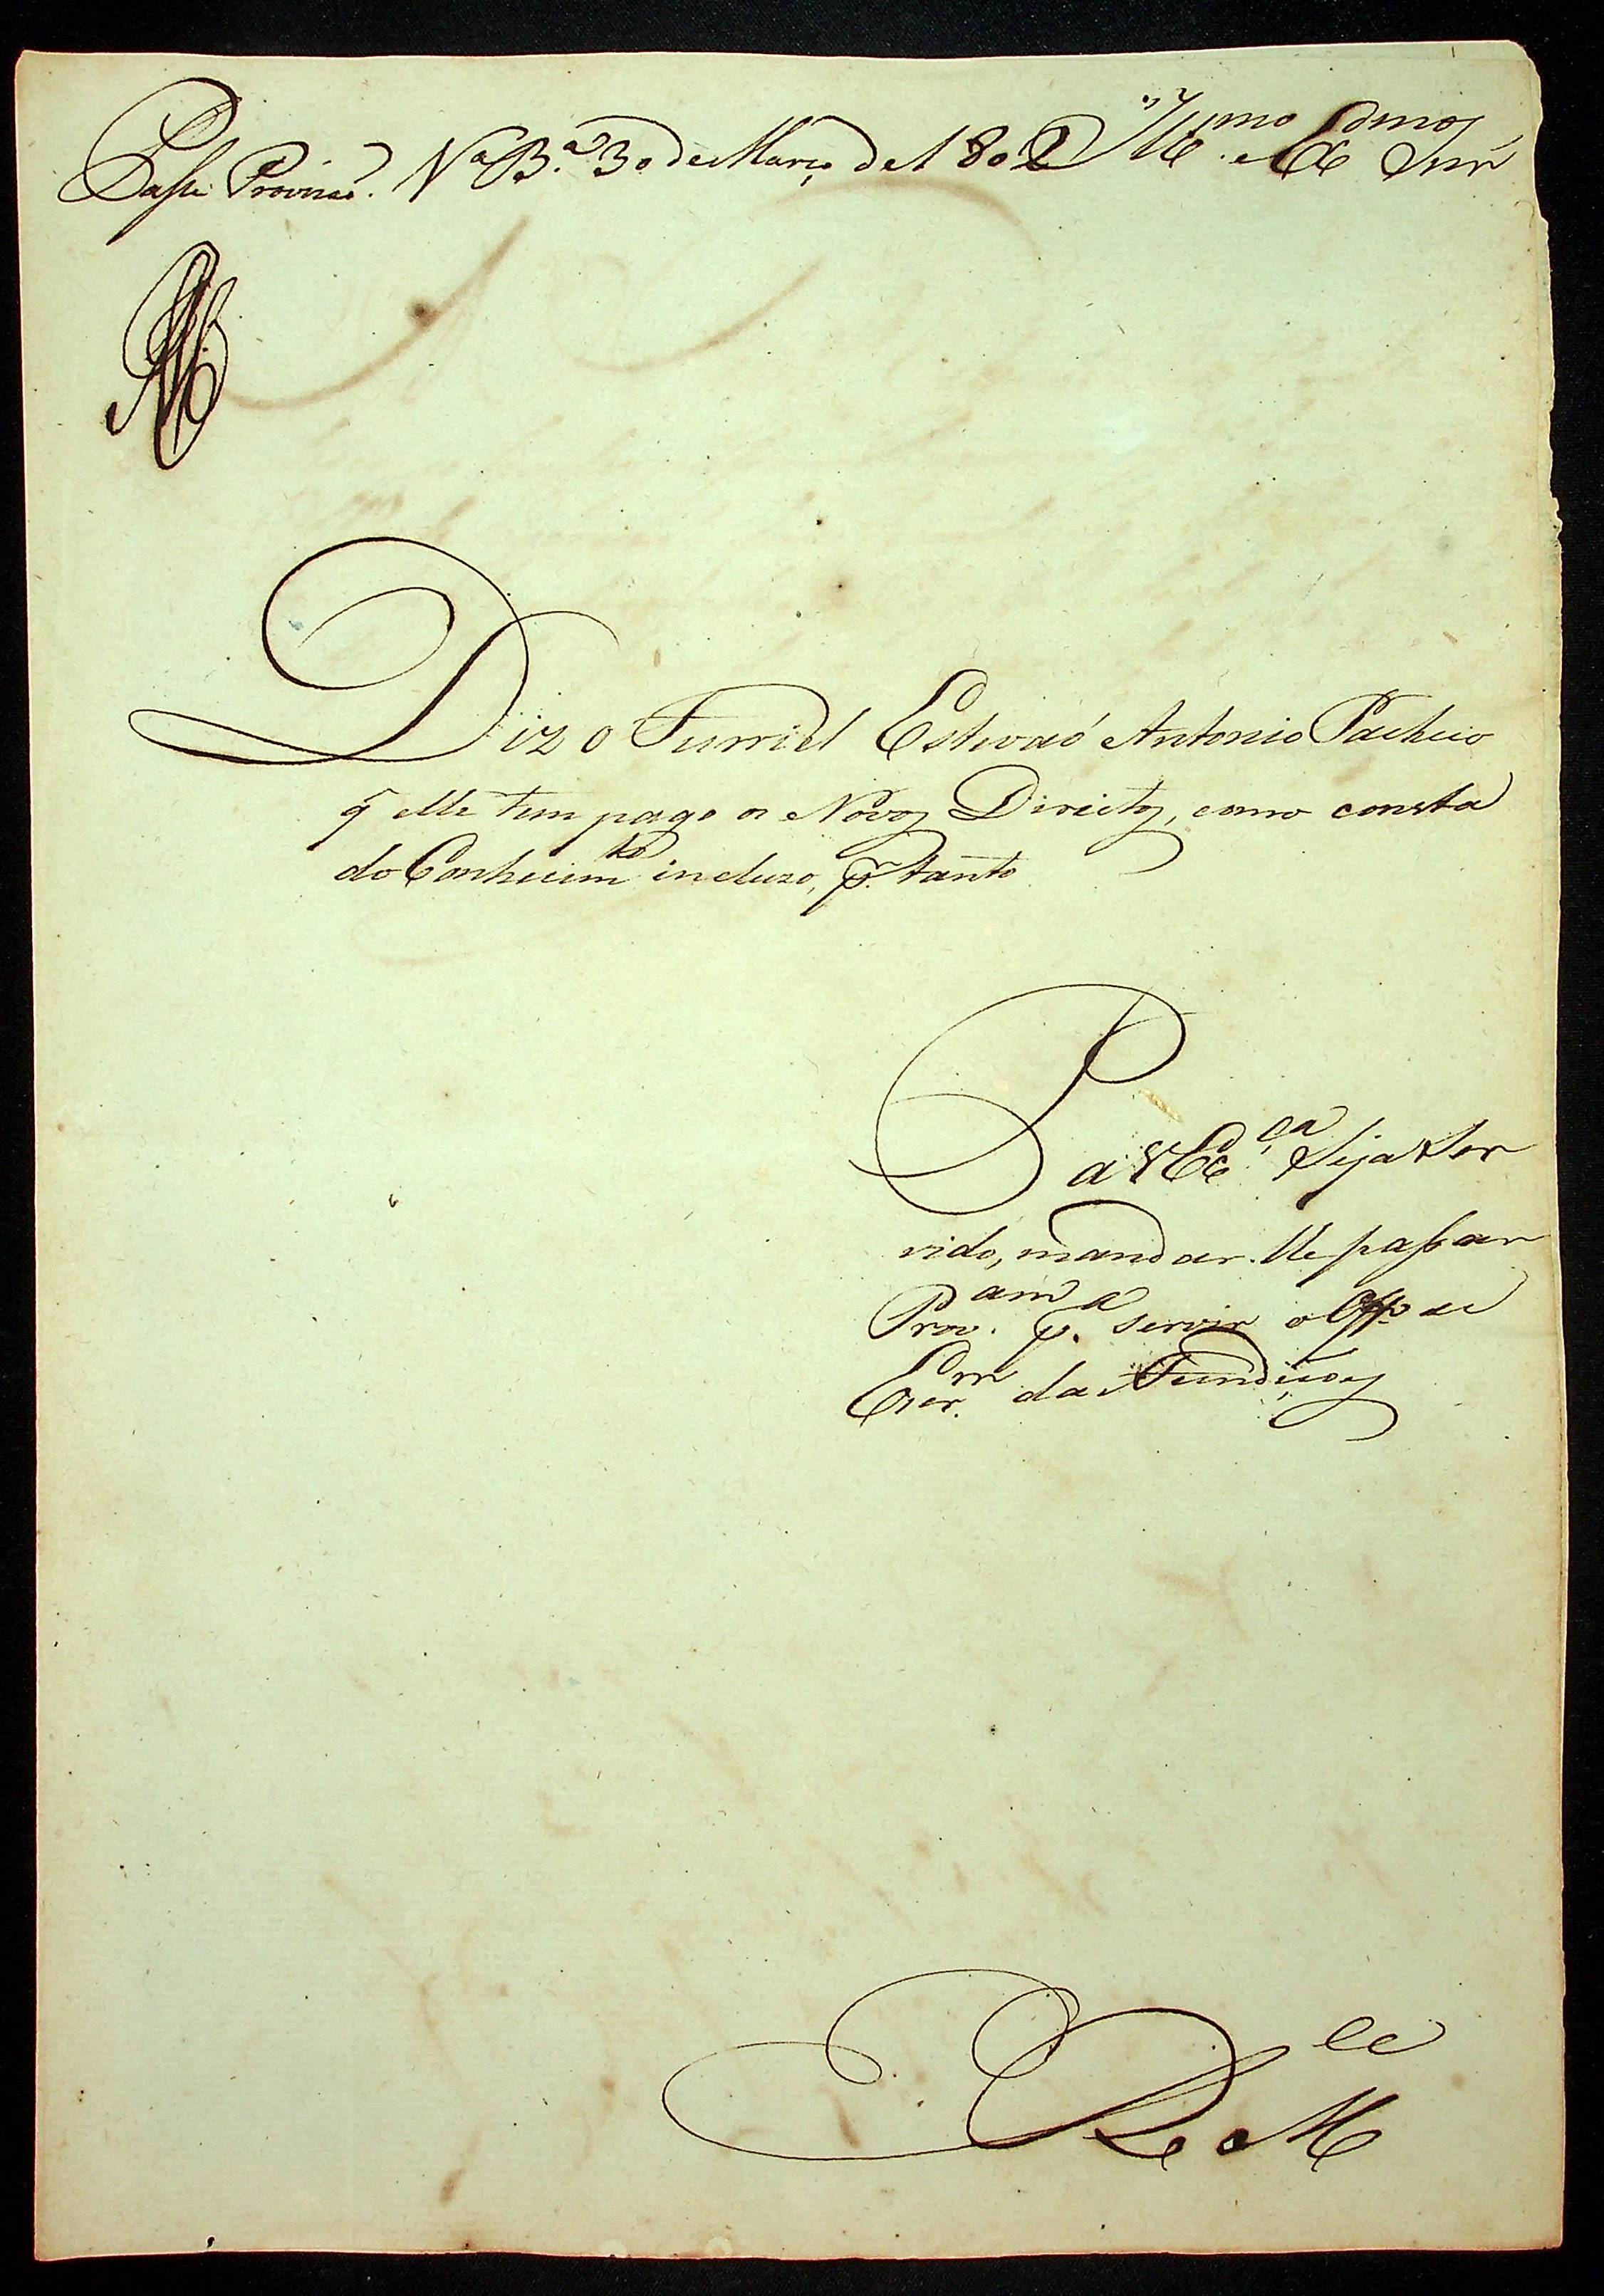 Passe Provizaõ. Nª Bª 30 de Março de 1802 Illmo e Exmo Snr
Diz o Furriel Estevaõ Antonio Pacheco
q̃ elle tem pago os Novos Direitos, como consta
do Conhecimto incluzo, pr tanto
P a V Exca Seja Ser
vido, mandar-lhe passar
Provam pa servir o Offo de
Escrm da Fundiçoes
E R Mce